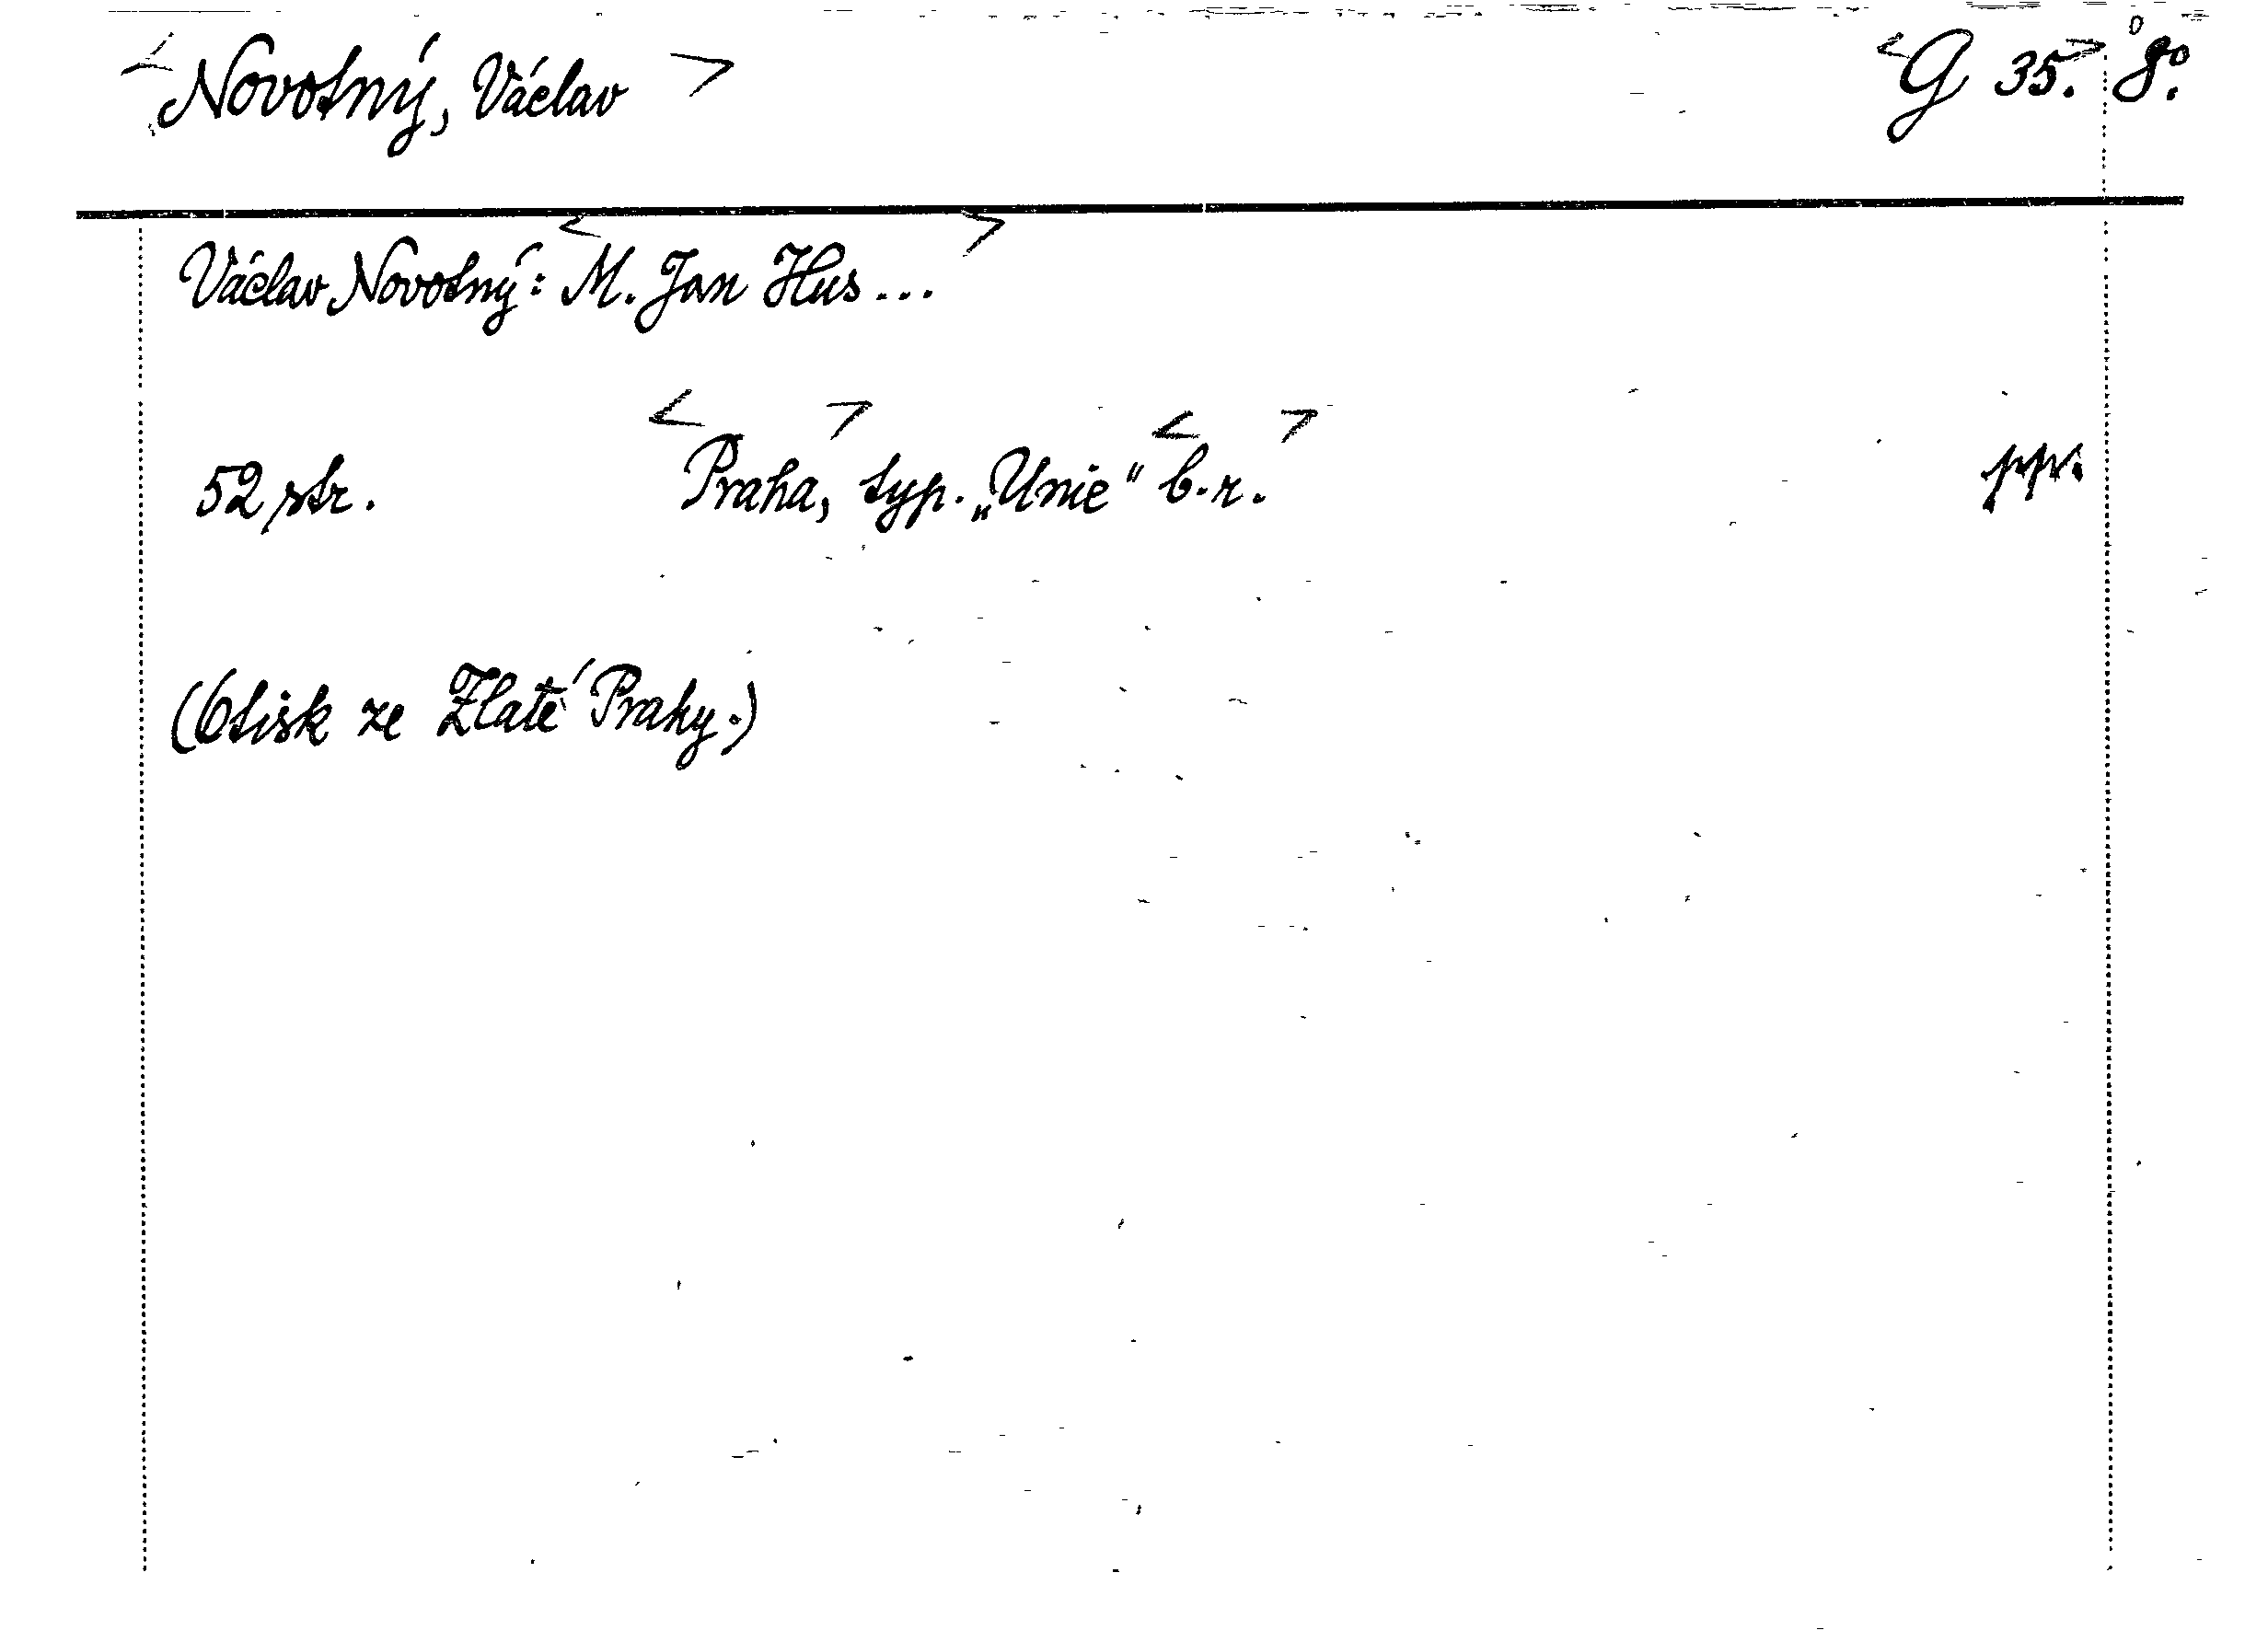 <Novotný, Václav> <G 35.> 8°.
Václav Novotný: <M. Jan Hus...>
52 str. <Praha,> typ. „Unie“ <b. r.> ppv.
(Otisk ze Zlaté Prahy.)